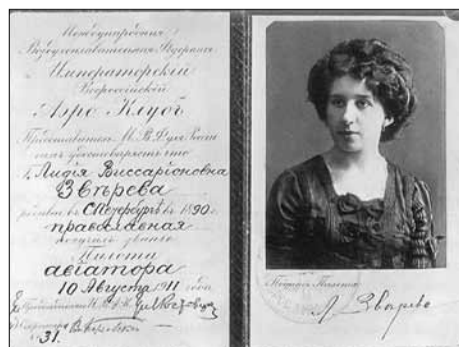 Международная
Воздухоплавательная Федерацiя
Императорскiй
Всероссiйскiй
Аэро-Клубъ
Представитель М. В. Ф. для Россiи
симъ удостовѣряетъ что
Лидiя Виссарiоновна
Звѣрева
въ С Петербургѣ въ 1890 г.
православная
получилъ званiе
Пилота
авiатора
10 Августа 1911 года
№ 31.
Подпись Пилота
Л Звѣрева